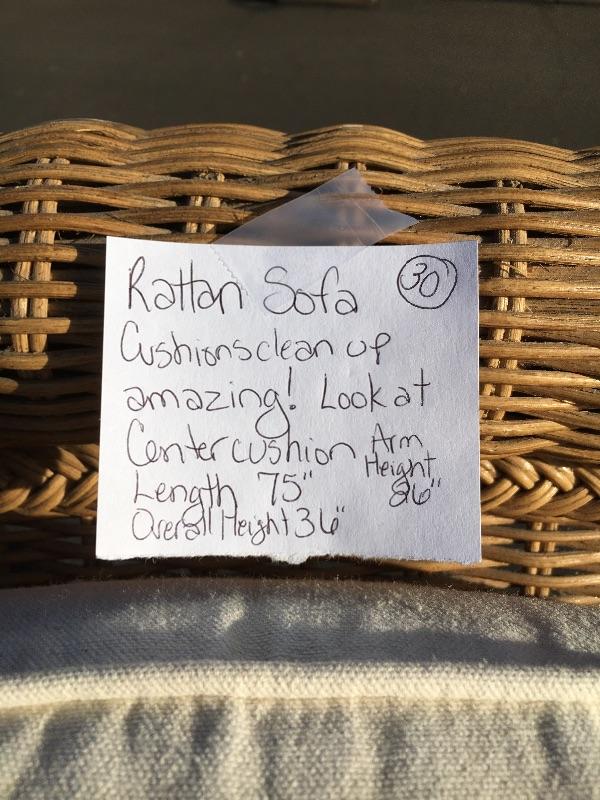 Rattan Sofa
30
Cushions clean up
amazing! Look at
Center cushion
Arm
Height
26"
Length 75"
Overall Height 36"